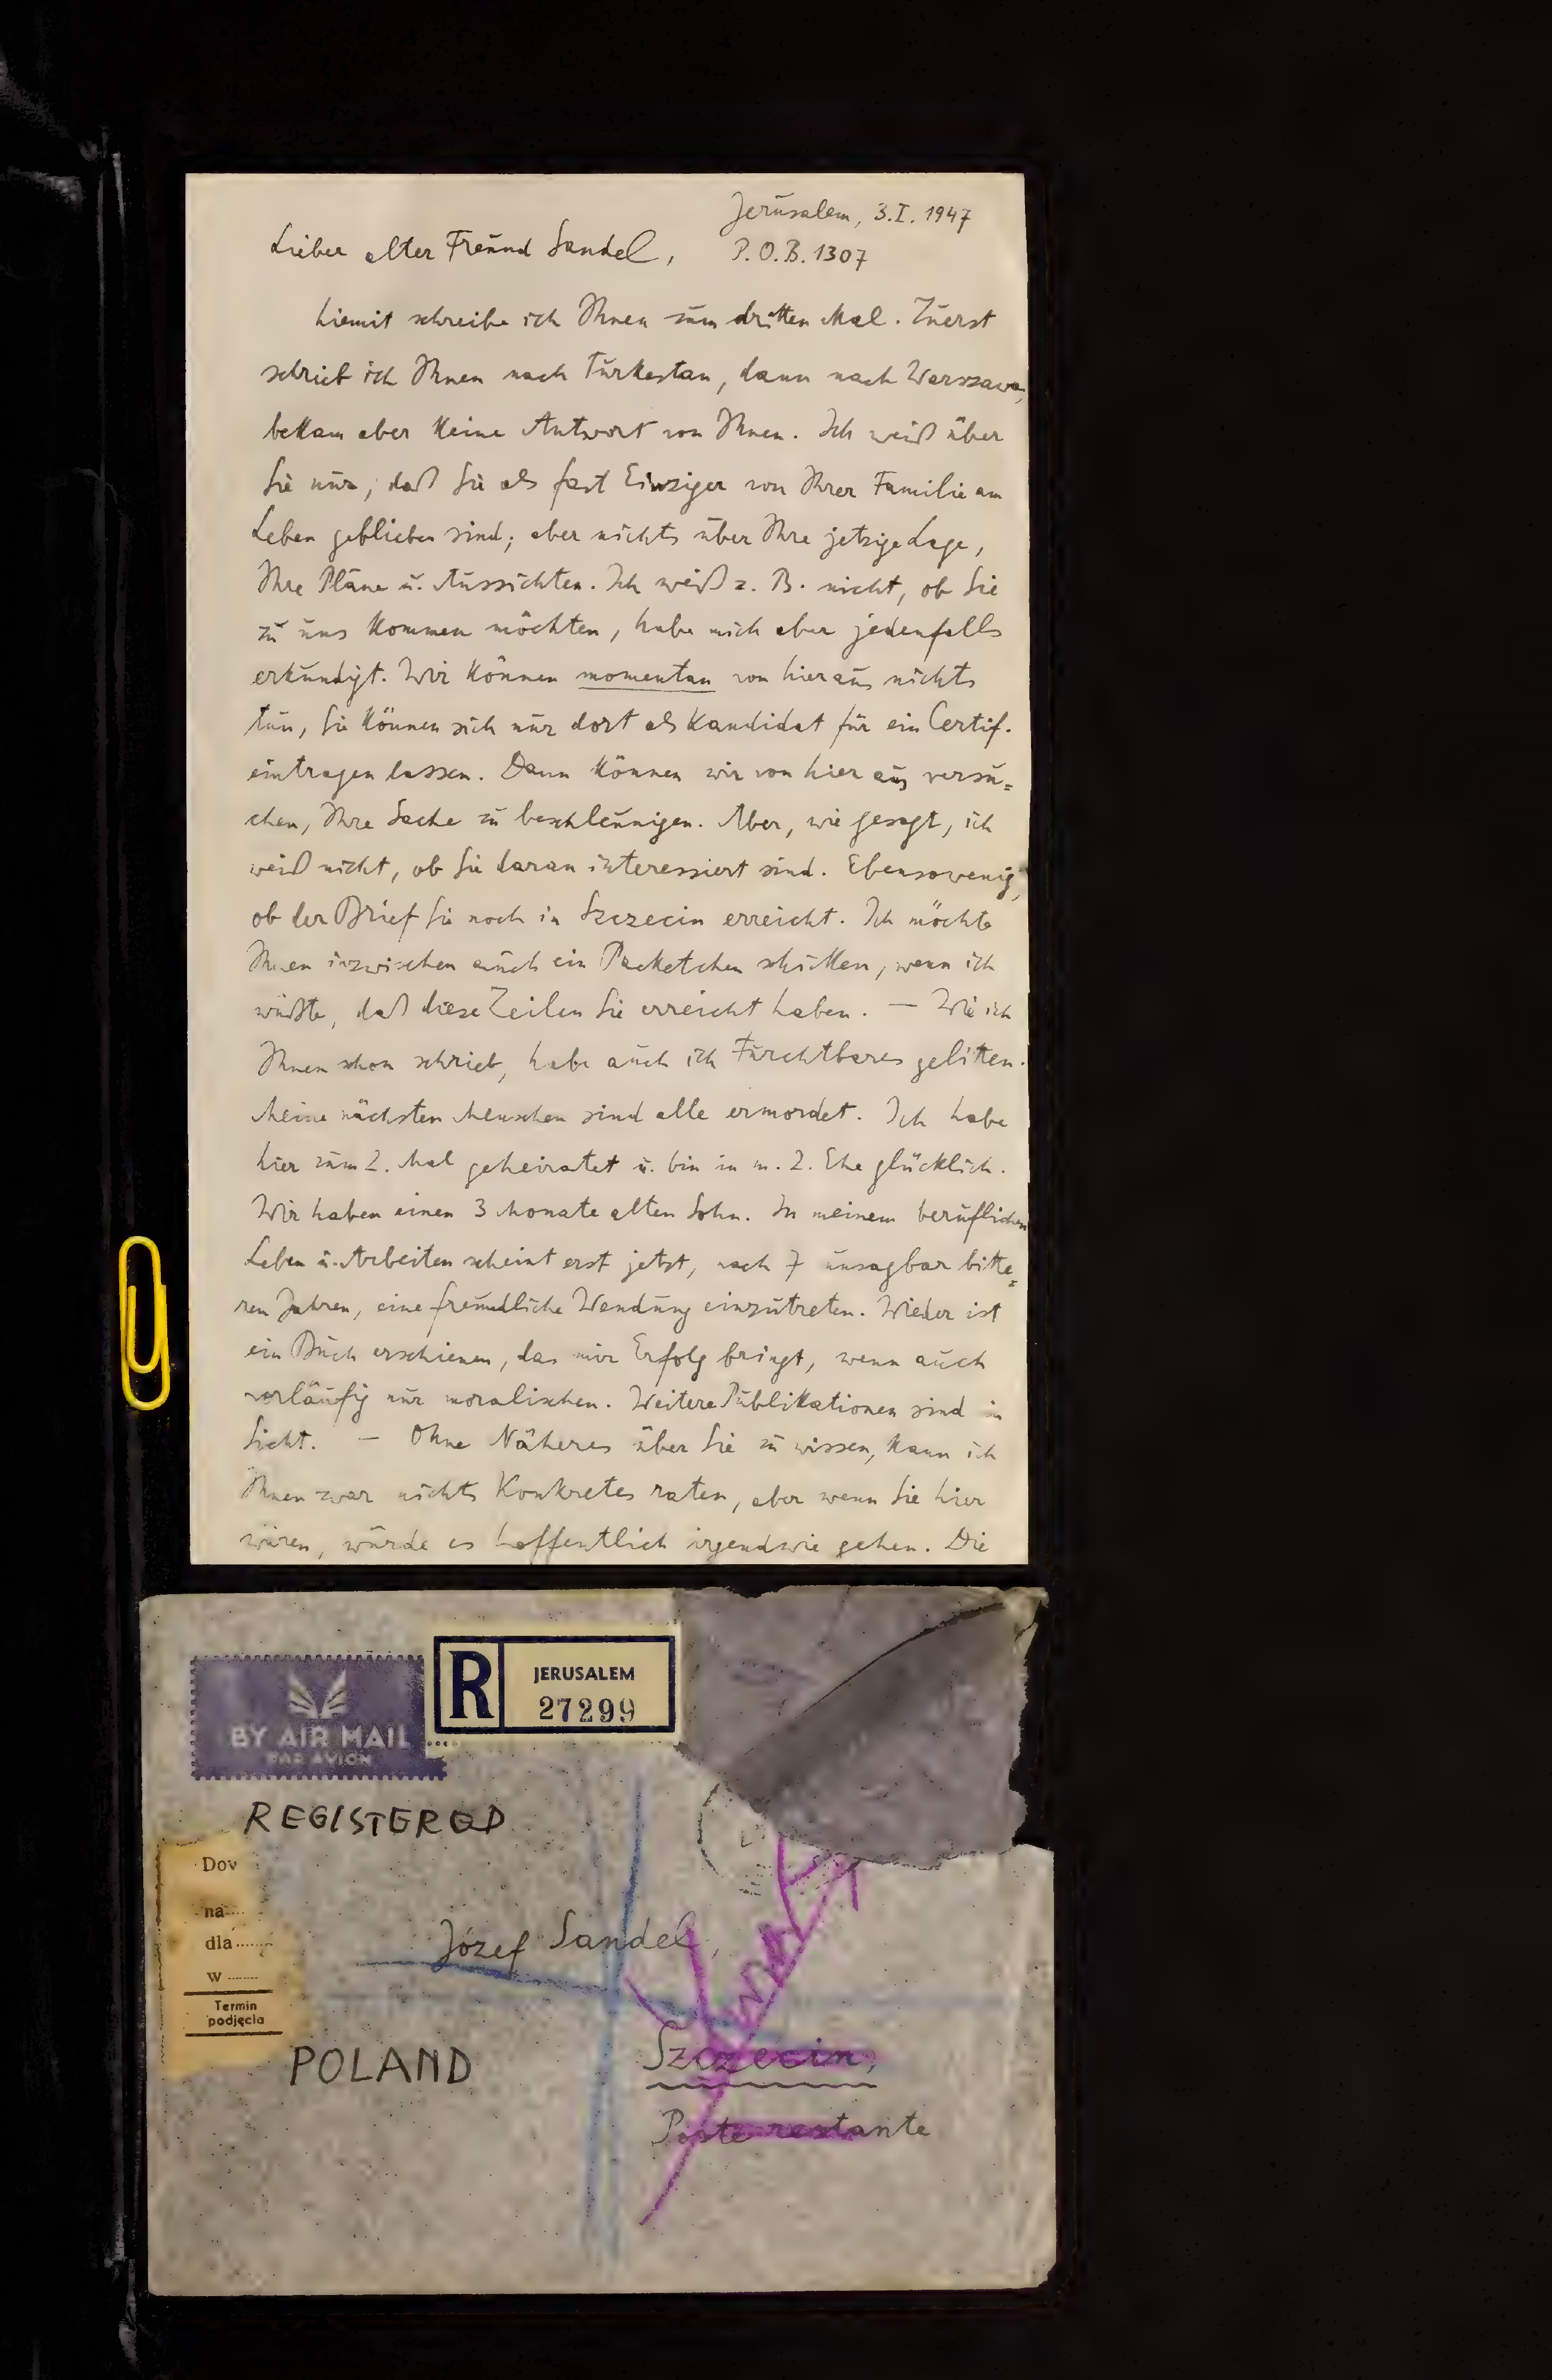 Jerusalem, 3.I.1947
Lieber alter Freund Sandel, P.O.B. 1307
hiemit schreibe ich Ihnen zum dritten Mal. Zuerst
schrieb ich Ihnen nach Turkestan, dann nach Warszawa,
bekam aber keine Antwort von Ihnen. Ich weiß über
Sie nur, daß Sie als fast Einziger von Ihrer Familie am
Leben geblieben sind; aber nichts über Ihre jetzige Lage,
Ihre Pläne u. Aussichten. Ich weiß z. B. nicht, ob Sie
zu uns kommen möchten, habe mich aber jedenfalls
erkundigt. Wir können momentan von hieraus nichts
tun, Sie können sich nur dort als Kandidat für ein Certif.
eintragen lassen. Dann können wir von hier aus versu=
chen, Ihre Sache zu beschleunigen. Aber, wie gesagt, ich
weiß nicht, ob Sie daran interessiert sind. Ebensowenig,
ob der Brief Sie noch in Szczecin erreicht. Ich möchte
Ihnen inzwischen auch ein Packetchen schicken, wenn ich
wüßte, daß diese Zeilen Sie erreicht haben. — Wie ich
Ihnen schon schrieb, habe auch ich Furchtbares gelitten.
Meine nächsten Menschen sind alle ermordet. Ich habe
hier zum 2. Mal geheiratet u. bin in m. 2. Ehe glücklich.
Wir haben einen 3 Monate alten Sohn. In meinem beruflichen
Leben u. Arbeiten scheint erst jetzt, nach 7 unsagbar bitte=
ren Jahren, eine freundliche Wendung einzutreten. Wieder ist
ein Buch erschienen, das mir Erfolg bringt, wenn auch
vorläufig nur moralischen. Weitere Publikationen sind in
Sicht. — Ohne Näheres über Sie zu wissen, kann ich
Ihnen zwar nichts Konkretes raten, aber wenn Sie hier
wären, würde es hoffentlich irgendwie gehen. Die
R JERUSALEM
27299
BY AIR MAIL
PAR AVION
REGISTERED
Dov
na
dla
w
Termin
podjęcia
Józef Sandel,
POLAND
Szczecin,
Poste restante